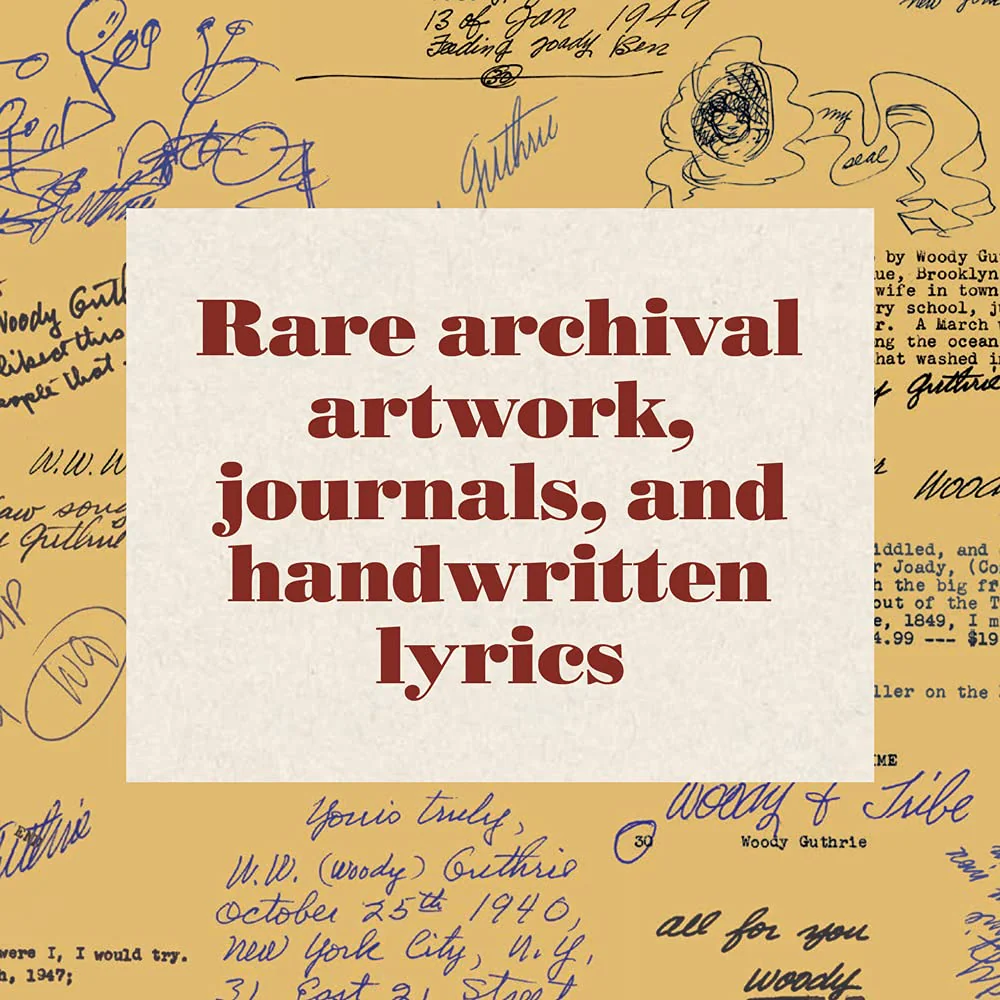 13 of Jan 1949
Fading Joady Ben
30
Guthrie
my
seal
Guthrie
by Woody Gu
ue, Brooklyn
wife in town
ry school, j
r. A March
ng the ocean
hat washed i
Guthrie
Woody Guth
liked this
eople that
Rare archival
artwork,
journals, and
handwritten
lyrics
W.W. W
aw song
Guthrie
WG
Wood
iddled, and
r Joady, (Co
h the big fr
out of the T
e, 1849, I m
4.99 --- $19
ller on the
IME
Woody & Tribe
30
Woody Guthrie
Guthrie
END
Yours truly,
W.W. (Woody) Guthrie
October 25th 1940,
New York City, N.Y.,
31 East 21 Street
were I, I would try.
h, 1947;
all for you
woody